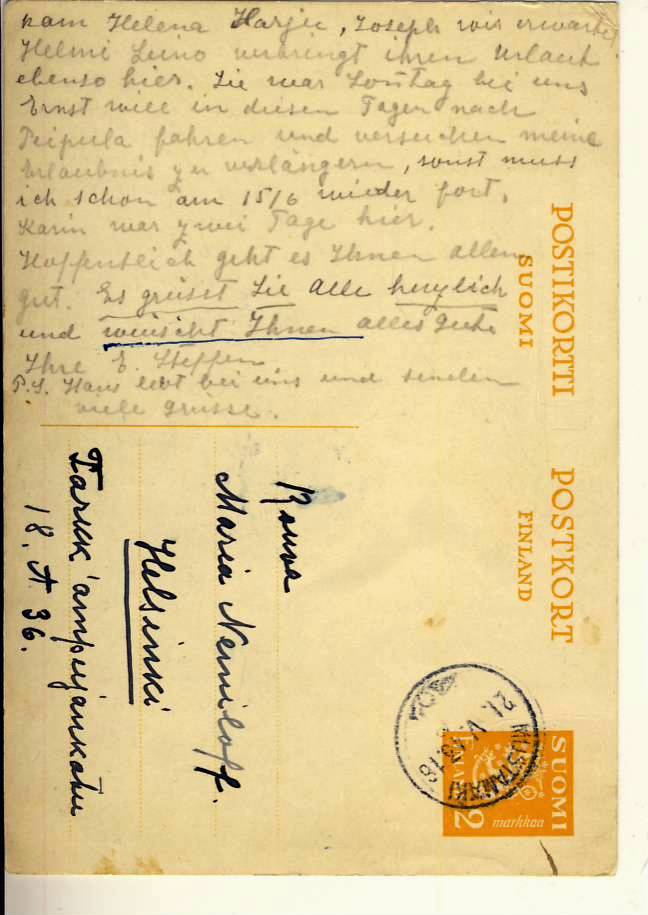 kam Helena Harjie, Joseph wir erwarten
Helmi Leino verbringt ihren Urlaub
ebenso hier. Sie war Sontag bei uns
Ernst will in diesen Tagen nach
Peipula fahren und versuchen meine
Erlaubnis zu verlängern, sonst muss
ich schon am 15/6 wieder fort.
Karin war zwei Tage hier.
Hoffentlich geht es Ihnen allen
gut. Es grüsst Sie Alle herzlich
und wünscht Ihnen alles Gute
Ihre E. Steffen
P.S. Hans lebt bei uns und senden
viele Grüsse.
POSTIKORTTI POSTKORT
SUOMI FINLAND
Rouva
Maria Nemiloff.
Helsinki
18. A 36.
MUSTAMÄKI
21. V. 43.18
SUOMI
FINLAND
2 markkaa